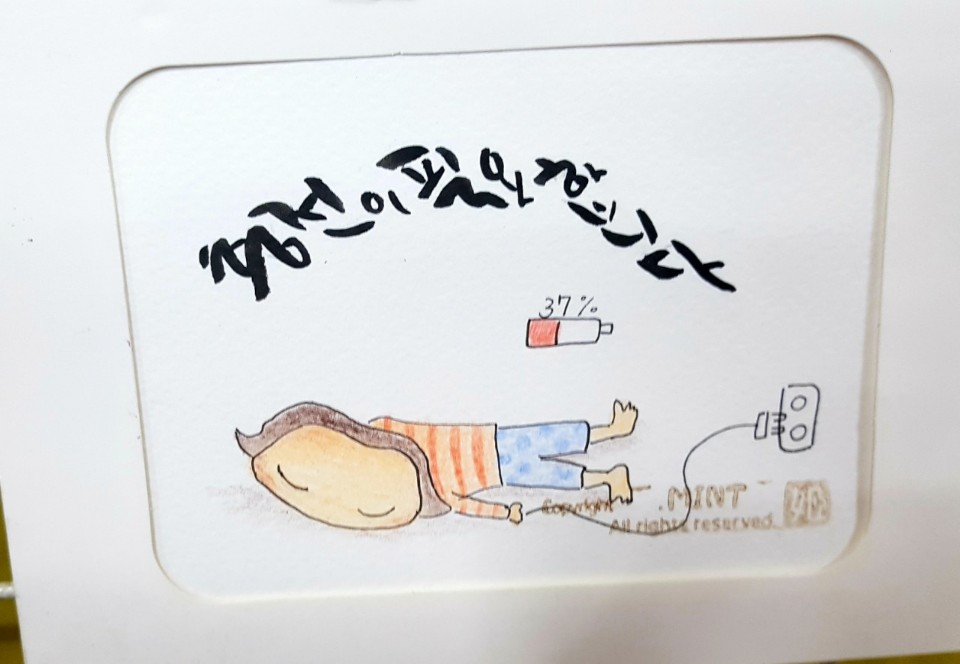 충전이 필요합니다
37%
Copyright
.MINT
All rights reserved.